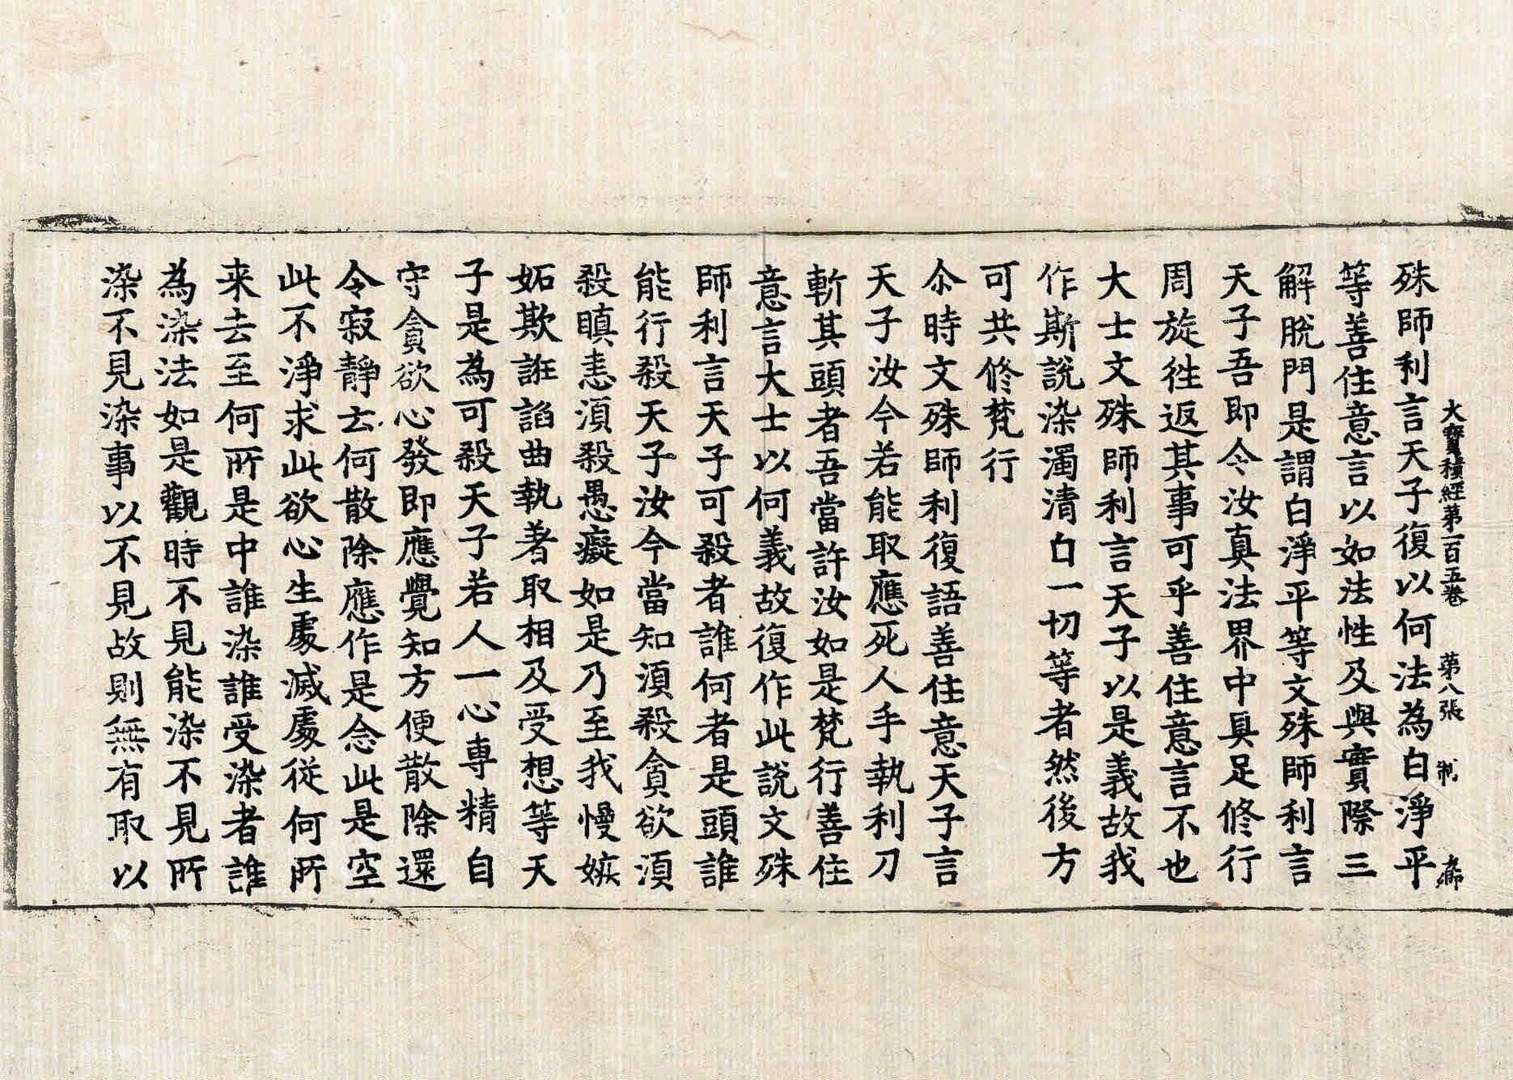 大寶積經第一百五卷 第八張 制
殊師利言天子復以何法為白淨平
等善住意言以如法性及與實際三
解脫門是謂白淨平等文殊師利言
天子吾即令汝真法界中具足修行
周旋往返其事可乎善住意言不也
大士文殊師利言天子以是義故我
作斯說染濁清白一切等者然後方
可共修梵行
尒時文殊師利復語善住意天子言
天子汝今若能取應死人手執利刀
斬其頭者吾當許汝如是梵行善住
意言大士以何義故復作此說文殊
師利言天子可殺者誰何者是頭誰
能行殺天子汝今當知湏殺貪欲湏
殺瞋恚湏殺愚癡如是乃至我慢嫉
妬欺誑諂曲執著取相及受想等天
子是為可殺天子若人一心專精自
守貪欲心發即應覺知方便散除還
令寂靜去何散除應作是念此是空
此不淨求此欲心生處滅處従何所
来去至何所是中誰染誰受染者誰
為染法如是觀時不見能染不見所
染不見染事以不見故則無有取以